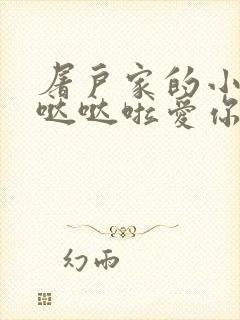 屠户家的小
哒哒啦爱你
幻雨